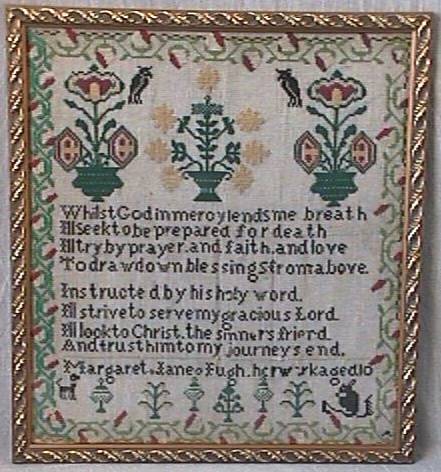 Whilst God in mercy lends me breath
Ill seek to be prepared for death
Ill try by prayer. and faith. and love
To draw down blessings from above.
Instructed by his holy word.
Ill strive to serve my gracious Lord.
Ill look to Christ. the sinners friend
And trust him to my journeys end.
Margaret Jane Pugh. her work aged 10